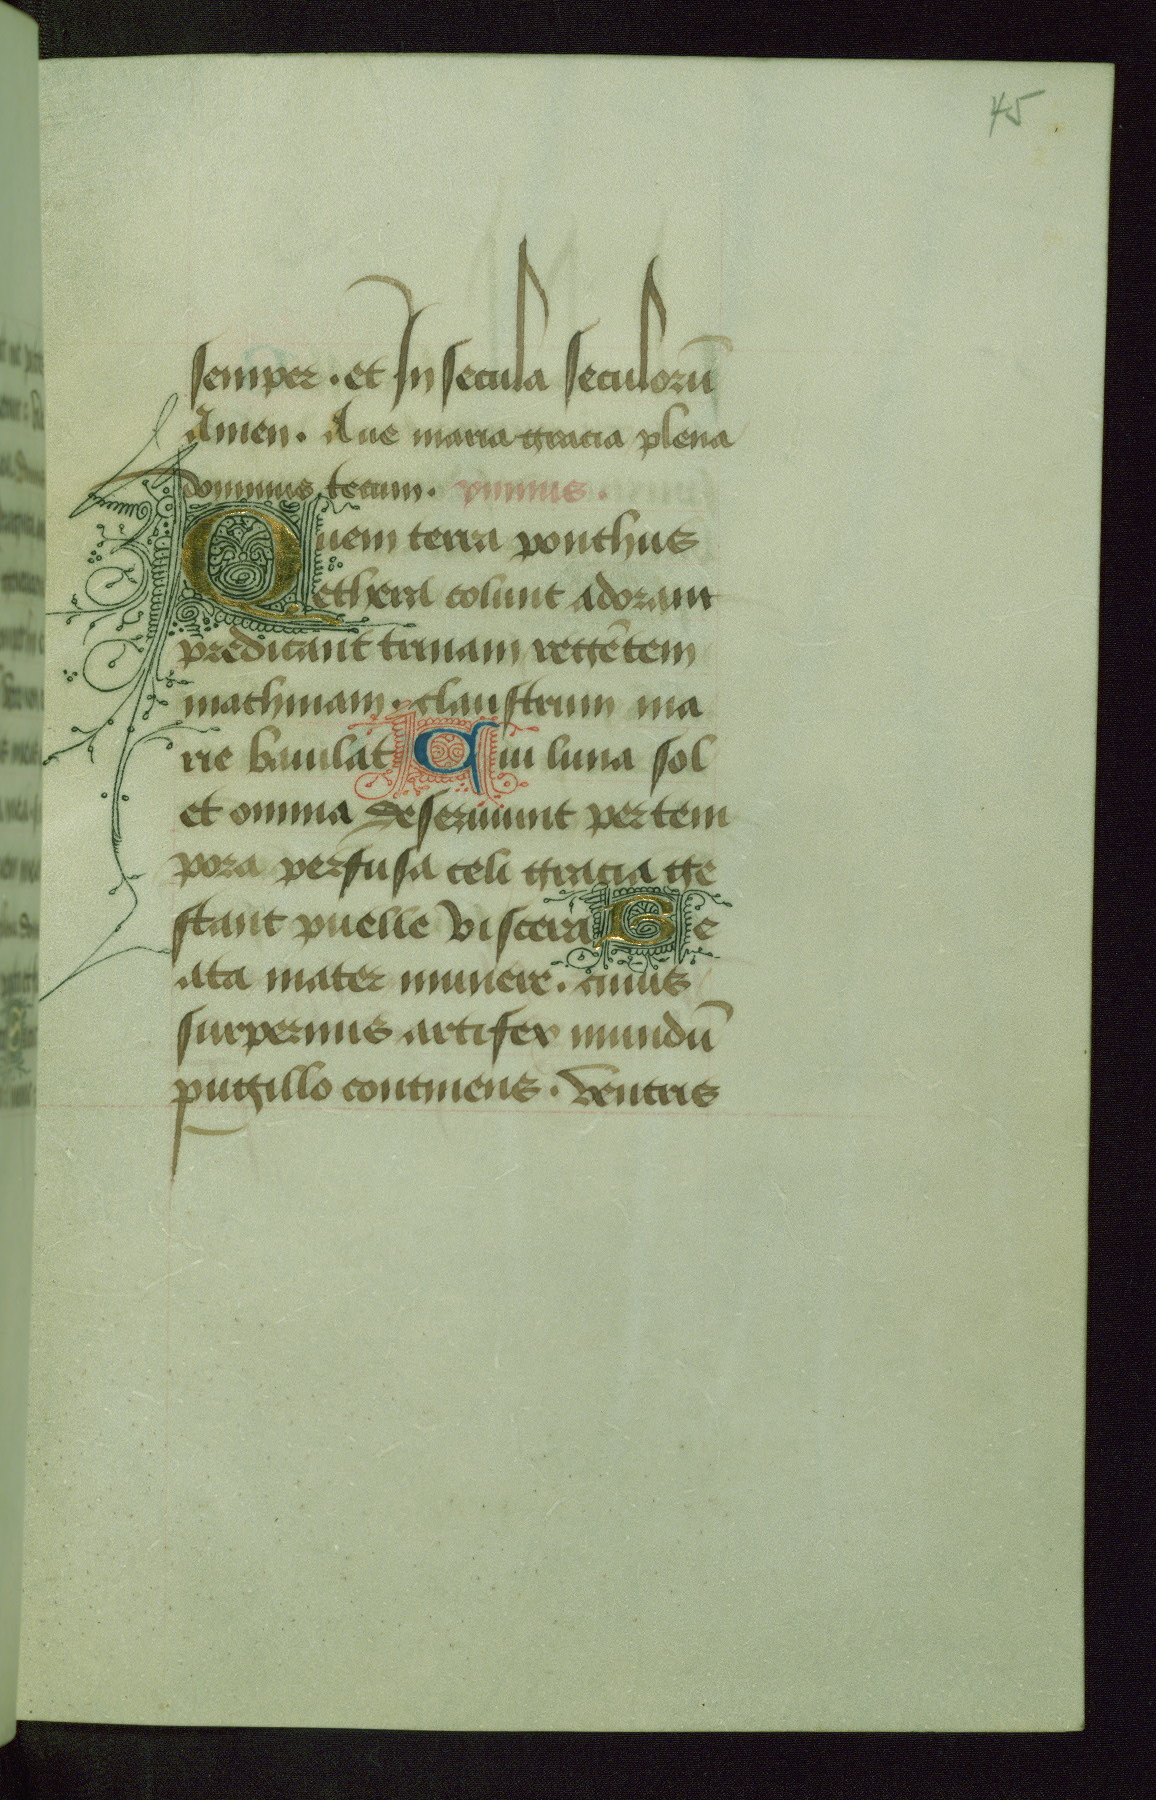 45
semper · et In secula seculorū
Amen · Aue maria gracia plena
dominus tecum · ymnus ·
Quem terra ponthus
ethera colunt adorant
predicant trinam regētem
machinam · claustrum ma
rie baiulat Cui luna sol
et omnia deseruiunt per tem
pora perfusa celi gracia ge
stant puelle viscera Be
ata mater munere · cuius
surpernus artifex mundū
pugillo continens · ventris